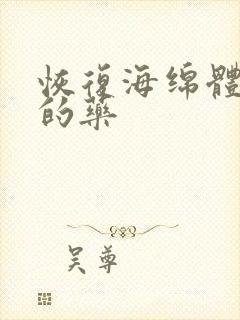 恢復海绵體
的藥
吴尊